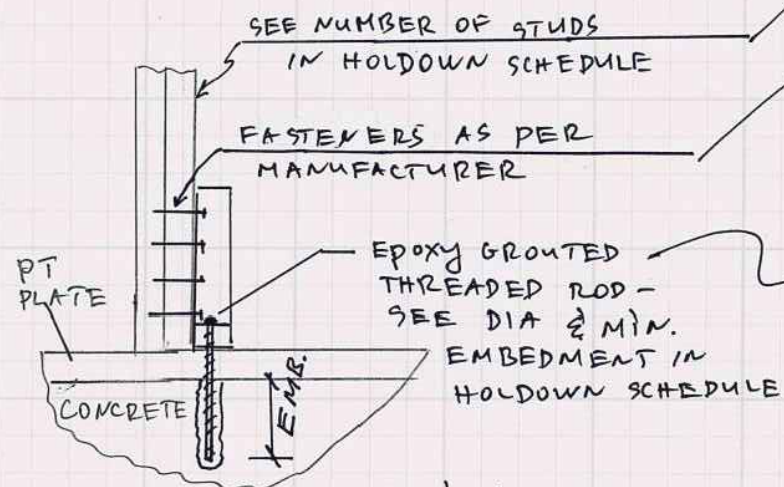 SEE NUMBER OF STUDS
IN HOLDOWN SCHEDULE
FASTENERS AS PER
MANUFACTURER
PT
PLATE
EPOXY GROUTED
THREADED ROD -
SEE DIA & MIN.
EMBEDMENT IN
HOLDOWN SCHEDULE
CONCRETE
EMB.